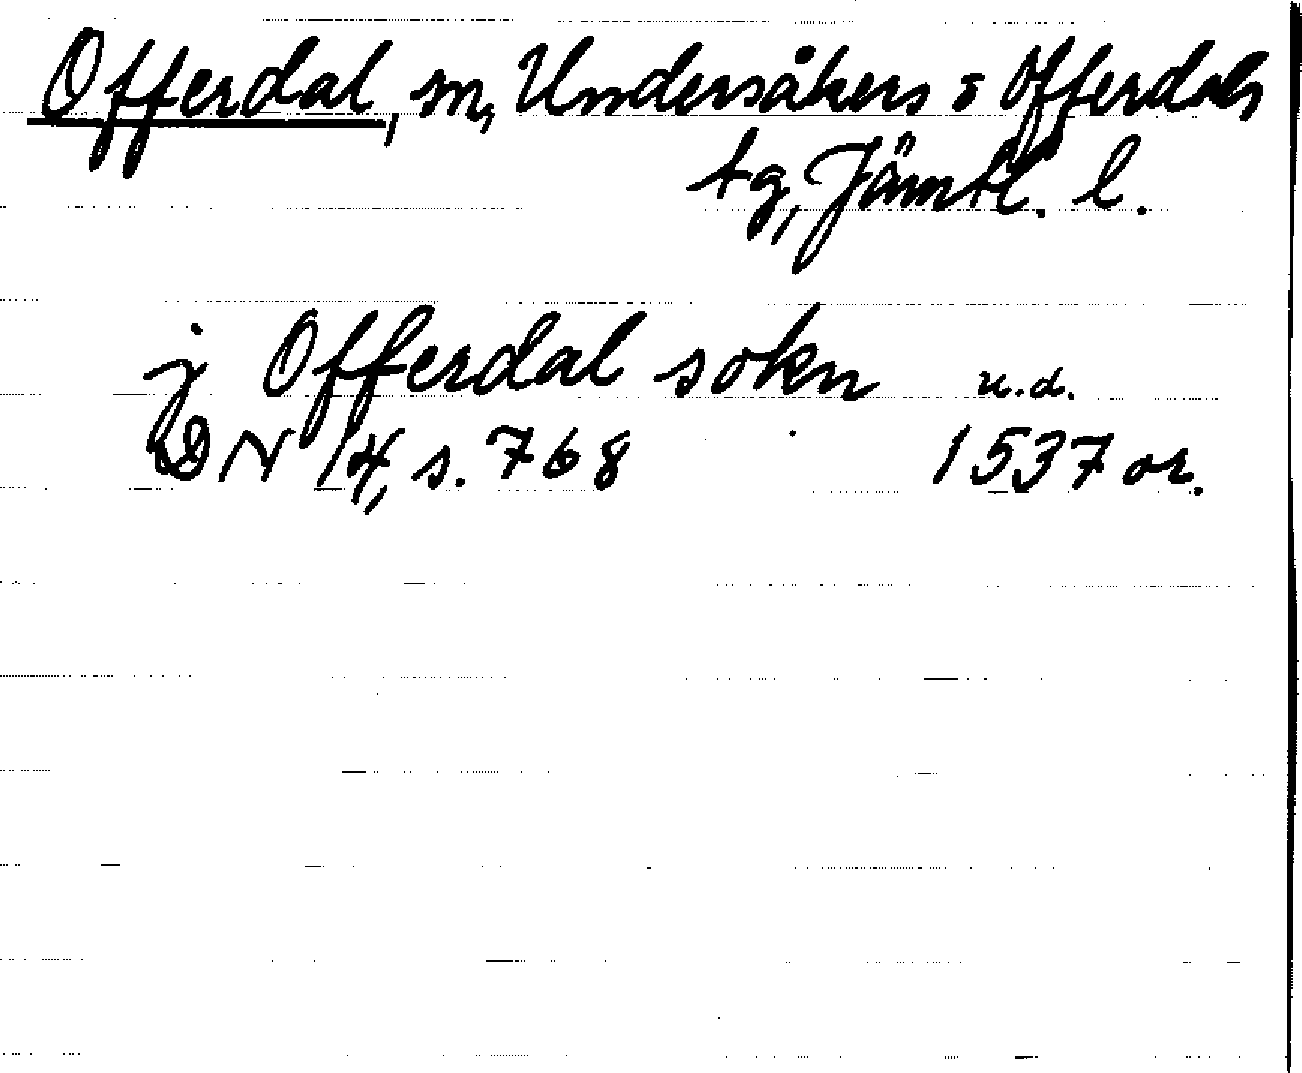 Offerdal, sn, Undersåkers o Offerdals
tg, Jämtl. l.
j Offerdal sokn u.d.
DN 14, s. 768 1537 or.